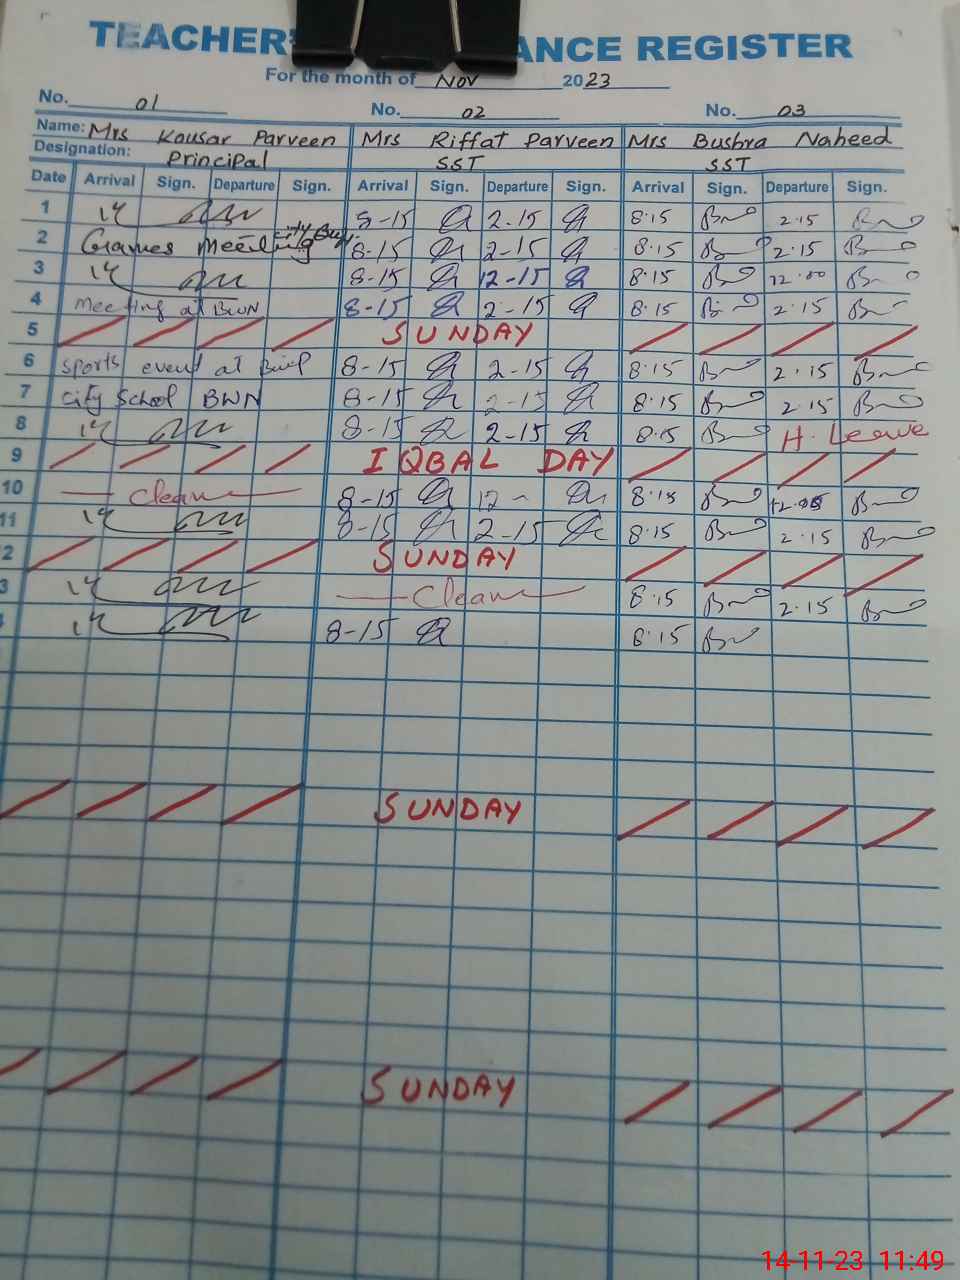 TEACHER' ANCE REGISTER
For the month of Nov 2023
No. 01 No. 02 No. 03
Name: Mrs Kousar Parveen Mrs Riffat Parveen Mrs Bushra Naheed
Designation: Principal SST SST
Date Arrival Sign. Departure Sign. Arrival Sign. Departure Sign. Arrival Sign. Departure Sign.
1 8-15 2-15 8.15 2.15
2 Games Meeting 8-15 2-15 8.15 2.15
3 8-15 12-15 8.15 12.00
4 meeting at BWN 8-15 2-15 8.15 2.15
5 SUNDAY
6 sports event at 8-15 2-15 8.15 2.15
7 City School BWN 8-15 2-15 8.15 2.15
8 8-15 2-15 8.15 H. Leave
9 IQBAL DAY
10 Clean 8-15 12 8.15
11 8-15 2-15 8.15 2.15
2 SUNDAY
3 Clean 8.15 2.15
8-15 8.15
SUNDAY
SUNDAY
14-11-23 11:49